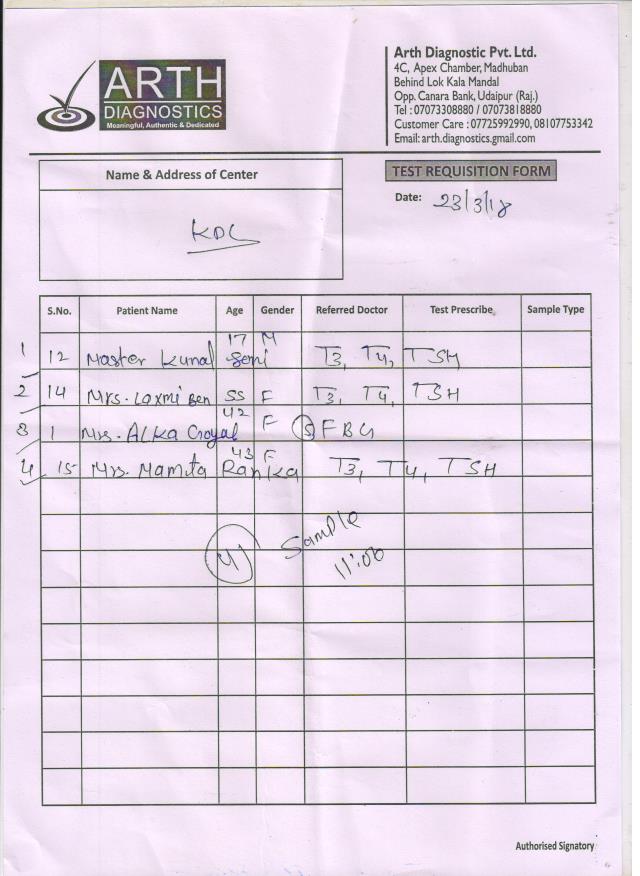 ARTH
DIAGNOSTICS
Meaningful, Authentic & Dedicated
Arth Diagnostic Pvt. Ltd.
4C, Apex Chamber, Madhuban
Behind Lok Kala Mandal
Opp. Canara Bank, Udaipur (Raj.)
Tel : 07073308880 / 07073818880
Customer Care : 07725992990, 08107753342
Email: arth.diagnostics.gmail.com
Name & Address of Center
KDC
TEST REQUISITION FORM
Date: 23/3/18
S.No. Patient Name Age Gender Referred Doctor Test Prescribe Sample Type
1 12 Master Kunal Soni 17 M T3, T4, TSH
2 14 Mrs. Laxmi Ben 55 F T3, T4, TSH
3 1 Mrs. Alka Goyal 42 F FBG
4 15 Mrs. Mamta Ranka 43 F T3, T4, TSH
Sample
11:00
Authorised Signatory